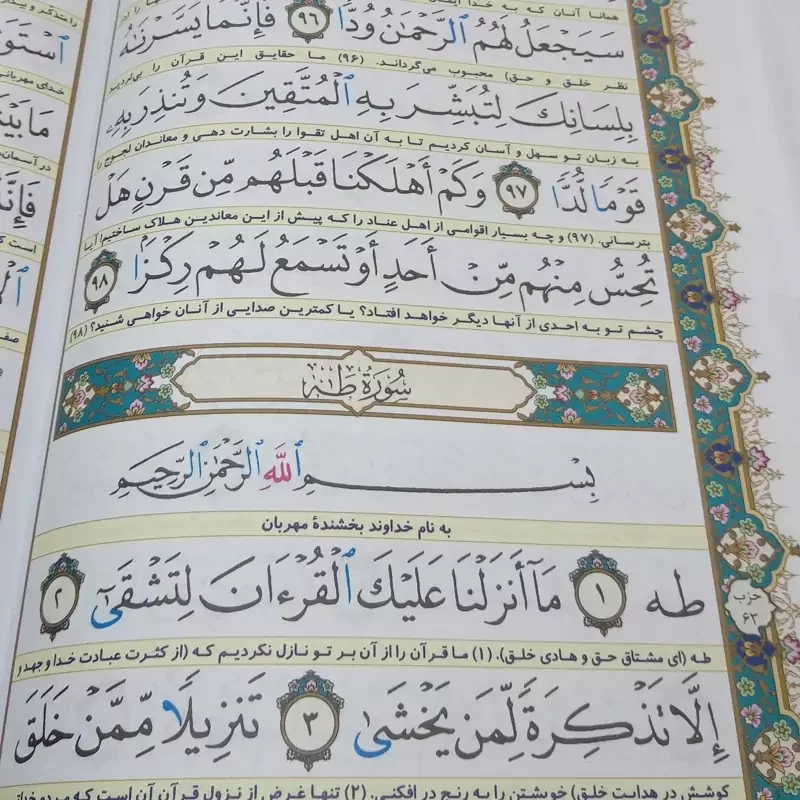 همانا آنان که به خدا ایمان
سَيَجْعَلُ لَهُمُ ٱلرَّحْمَـٰنُ وُدًّا ٩٦ فَإِنَّمَا يَسَّرْنَـٰهُ
نظر خلق و حق) محبوب می‌گرداند. (۹۶) ما حقایق این قرآن را
بِلِسَانِكَ لِتُبَشِّرَ بِهِ ٱلْمُتَّقِينَ وَتُنذِرَ بِهِۦ
به زبان تو سهل و آسان کردیم تا به آن اهل تقوا را بشارت دهی و معاندان لجوج را
قَوْمًا لُّدًّا ٩٧ وَكَمْ أَهْلَكْنَا قَبْلَهُم مِّن قَرْنٍ هَلْ
بترسانی. (۹۷) و چه بسیار اقوامی از اهل عناد را که پیش از این معاندین هلاک ساختیم! آیا
تُحِسُّ مِنْهُم مِّنْ أَحَدٍ أَوْ تَسْمَعُ لَهُمْ رِكْزًا ٩٨
چشم تو به احدی از آنها دیگر خواهد افتاد؟ یا کمترین صدایی از آنان خواهی شنید؟ (۹۸)
سُورَةُ طه
بِسْمِ ٱللَّهِ ٱلرَّحْمَـٰنِ ٱلرَّحِيمِ
به نام خداوند بخشندهٔ مهربان
طه ١ مَآ أَنزَلْنَا عَلَيْكَ ٱلْقُرْءَانَ لِتَشْقَىٰٓ ٢
طه (ای مشتاق حق و هادی خلق). (۱) ما قرآن را از آن بر تو نازل نکردیم که (از کثرت عبادت خدا و جهد و
حزب ۶۳
إِلَّا تَذْكِرَةً لِّمَن يَخْشَىٰ ٣ تَنزِيلًا مِّمَّنْ خَلَقَ
کوشش در هدایت خلق) خویشتن را به رنج در افکنی. (۲) تنها غرض از نزول قرآن آن است که